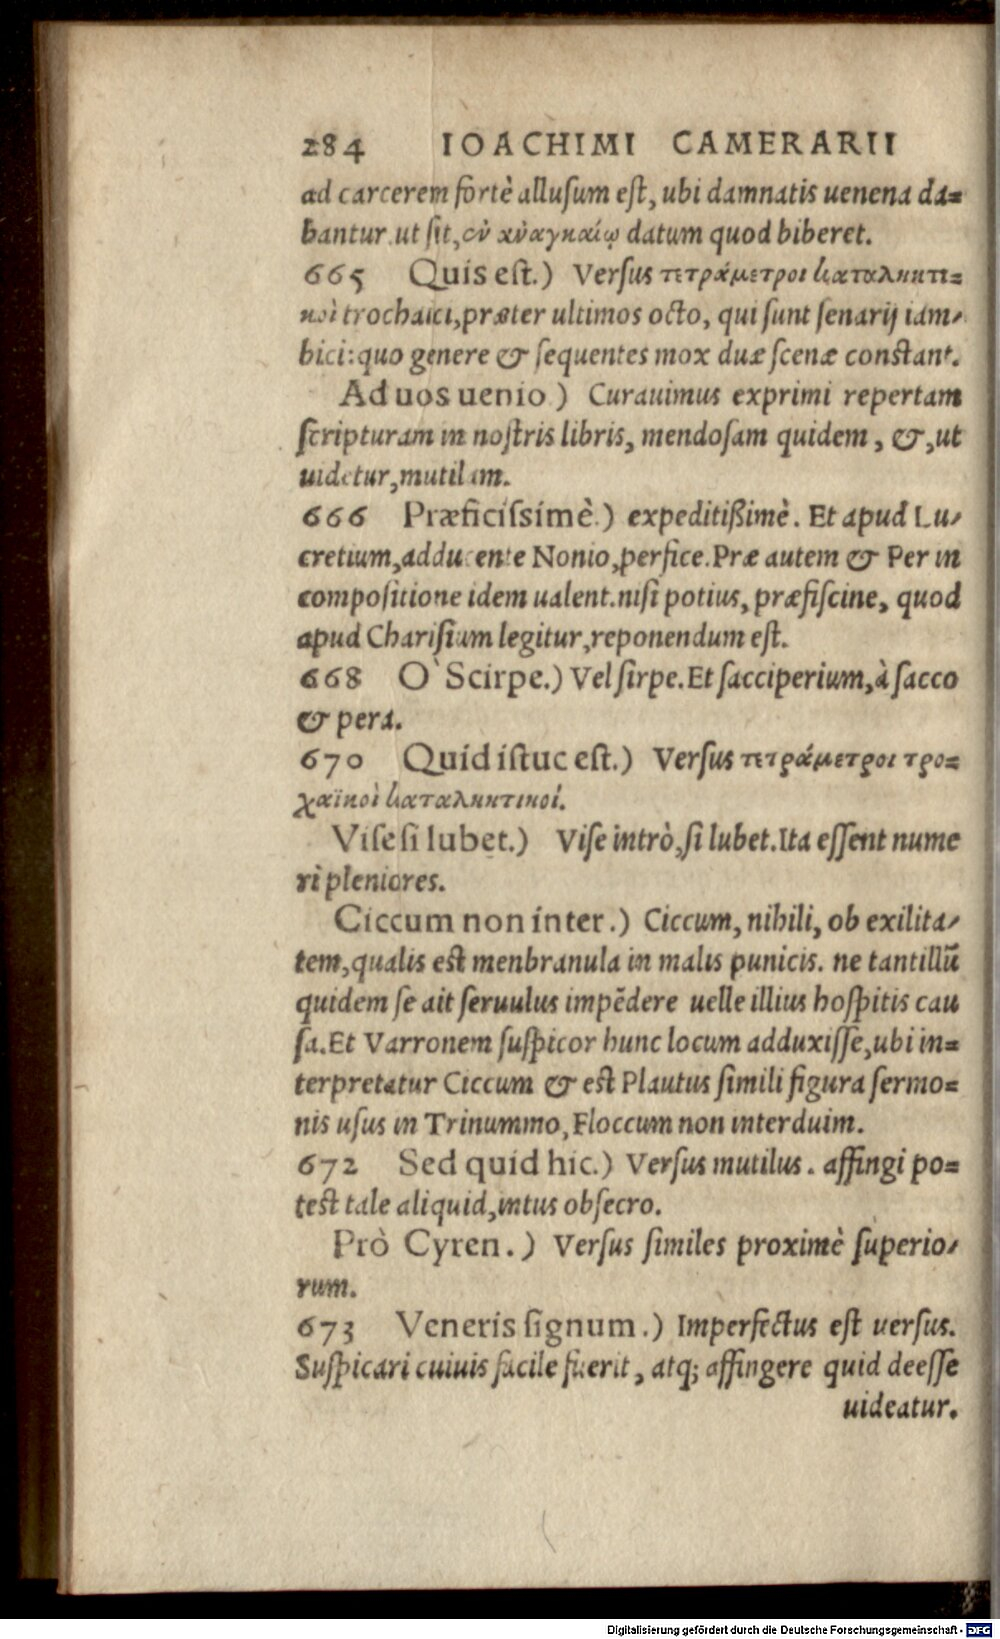 284 IOACHIMI CAMERARII
ad carcerem fortè allusum est, ubi damnatis uenena da=
bantur.ut sit, ἐν ἀναγκαίῳ datum quod biberet.
665 Quis est.) Versus τετράμετροι καταληκτι=
κοὶ trochaici, præter ultimos octo, qui sunt senarij iam-
bici: quo genere & sequentes mox duæ scenæ constant.
Ad uos uenio.) Curauimus exprimi repertam
scripturam in nostris libris, mendosam quidem, &, ut
uidetur, mutilam.
666 Præficissimè.) expeditißimè. Et apud Lu-
cretium, adducente Nonio, perfice. Præ autem & Per in
compositione idem ualent. nisi potius, præfiscine, quod
apud Charisium legitur, reponendum est.
668 O` Scirpe.) Vel sirpe. Et sacciperium, à sacco
& pera.
670 Quid istuc est.) Versus τετράμετροι τρο=
χαϊκοὶ καταληκτικοί.
Vise si lubet.) Vise intrò, si lubet. Ita essent nume
ri pleniores.
Ciccum non inter.) Ciccum, nihili, ob exilita-
tem, qualis est menbranula in malis punicis. ne tantillũ
quidem se ait seruulus impẽdere uelle illius hospitis cau
sa. Et Varronem suspicor hunc locum adduxisse, ubi in=
terpretatur Ciccum & est Plautus simili figura sermo=
nis usus in Trinummo, Floccum non interduim.
672 Sed quid hic.) Versus mutilus. affingi po=
test tale aliquid, intus obsecro.
Prò Cyren.) Versus similes proximè superio-
rum.
673 Veneris signum.) Imperfectus est uersus.
Suspicari cuiuis facile fuerit, atq; affingere quid deesse
uideatur.
Digitalisierung gefördert durch die Deutsche Forschungsgemeinschaft - DFG